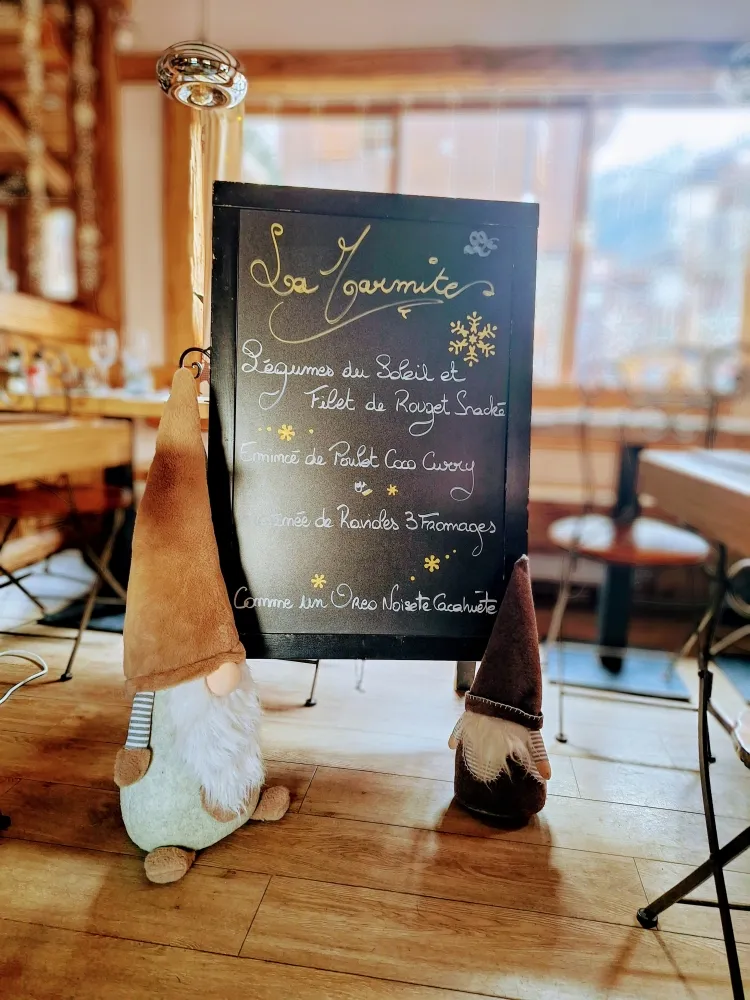 La Marmite
Légumes du Soleil et
Filet de Rouget Snacké
Emincé de Poulet Coco Curry
ou
de Ravioles 3 Fromages
Comme un Oreo Noisete Cacahuète